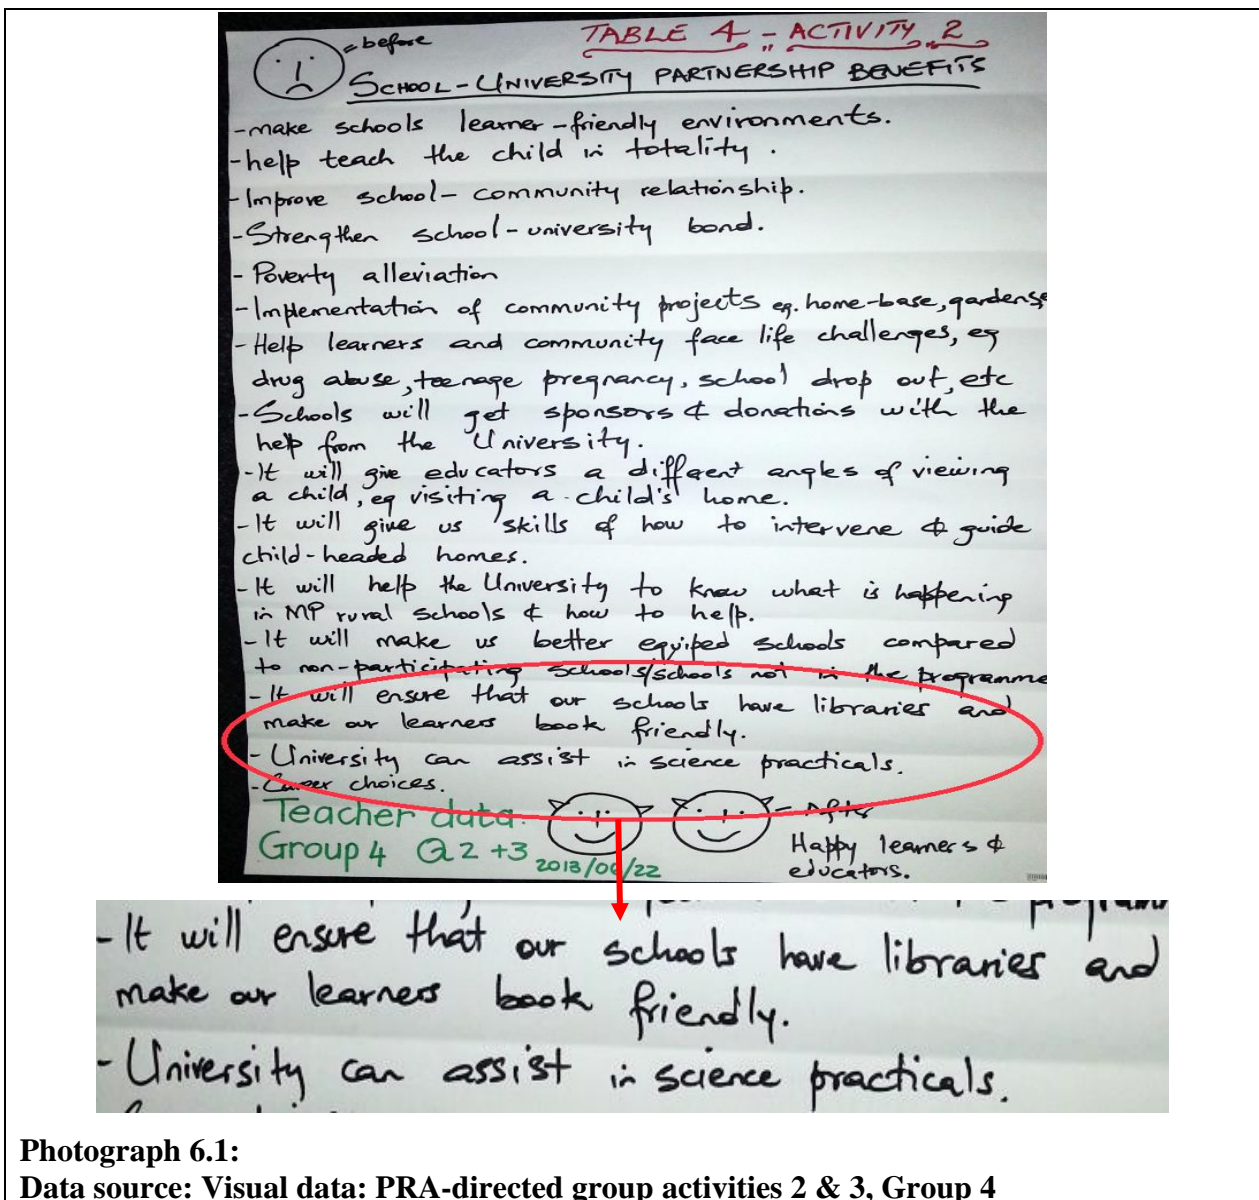 = before
TABLE 4 - ACTIVITY 2
SCHOOL-UNIVERSITY PARTNERSHIP BENEFITS
- make schools learner-friendly environments.
- help teach the child in totality.
- Improve school-community relationship.
- Strengthen school-university bond.
- Poverty alleviation
- Implementation of community projects eg. home-base, gardens
- Help learners and community face life challenges, eg
drug abuse, teenage pregnancy, school drop out, etc
- Schools will get sponsors & donations with the
help from the University.
- It will give educators a different angles of viewing
a child, eg visiting a child's home.
- It will give us skills of how to intervene & guide
child-headed homes.
- It will help the University to know what is happening
in MP rural schools & how to help.
- It will make us better equiped schools compared
to non-participating schools/schools not in the programme
- It will ensure that our schools have libraries and
make our learners book friendly.
- University can assist in science practicals.
- Career choices.
Teacher data:
Group 4 Q2 +3
- After
Happy learners &
educators.
- It will ensure that our schools have libraries and
make our learners book friendly.
- University can assist in science practicals.
Photograph 6.1:
Data source: Visual data: PRA-directed group activities 2 & 3, Group 4